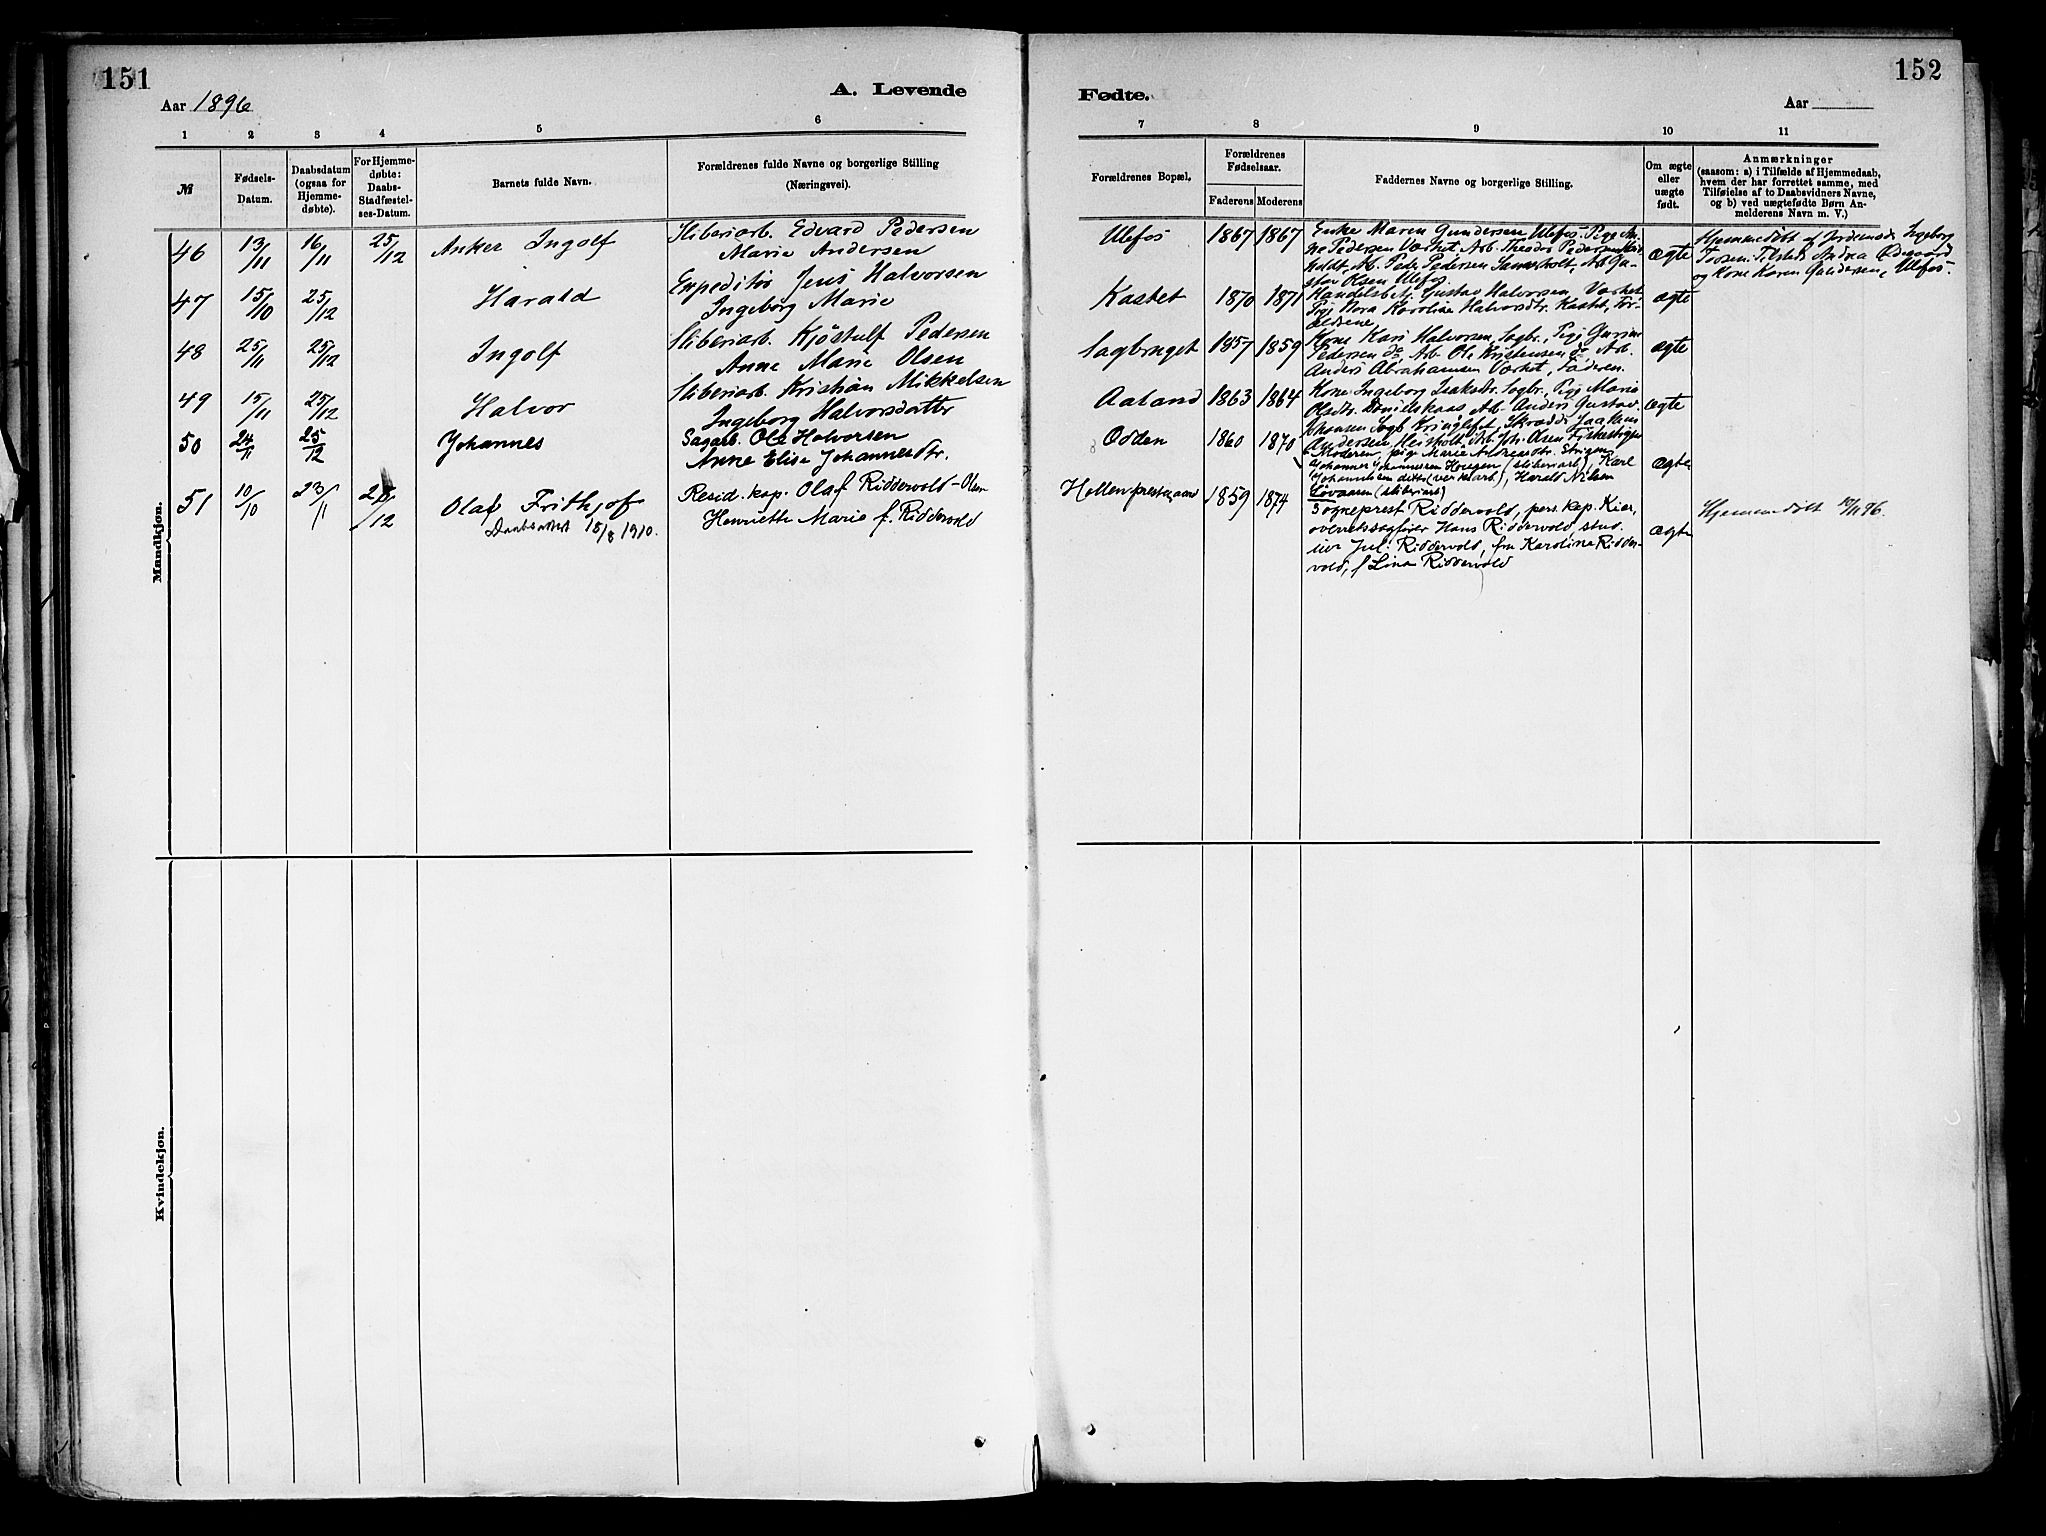 151
Aar 1896
A. Levende
1 2 3 4 5 6
№
Fødsels-
Datum.
Daabsdatum
(ogsaa for
Hjemme-
døbte).
For Hjemme-
døbte:
Daabs-
Stadfæstel-
ses-Datum.
Barnets fulde Navn.
Forældrenes fulde Navne og borgerlige Stilling
(Næringsvei).
Mandkjøn.
46 13/11 16/11 25/12 Anker Ingolf
Sliberiarb. Edvard Pedersen
Marie Andersen
47 15/10 25/12 Harald
Expeditør Jens Halvorsen
Ingeborg Marie
48 25/11 25/12 Ingolf
Sliberiarb. Kjøstulf Pedersen
Anne Marie Olsen
49 15/11 25/12 Halvor
Sliberiarb. Kristian Mikkelsen
Ingeborg Halvorsdatter
50 24/11 25/12 Johannes
Sagarb. Ole Halvorsen
Anne Elise Johannesdtr.
51 10/10 23/11 25/12 Olaf Frithjof
Daabsattest 15/8 1910.
Resid. kap. Olaf Riddervold-Olsen
Henriette Marie f. Riddervold
Kvindekjøn.
152
Fødte.
Aar
7 8 9 10 11
Forældrenes Bopæl,
Forældrenes
Fødselsaar.
Faderens Moderens
Faddernes Navne og borgerlige Stilling.
Om ægte
eller
uægte
født.
Anmærkninger
(saasom: a) i Tilfælde af Hjemmedaab,
hvem der har forrettet samme, med
Tilføielse af to Daabsvidners Navne,
og b) ved uægtefødte Børn An-
melderens Navn m. V.)
Ulefos 1867 1867
Enke Maren Gundersen Ulefos. Pige An-
ne Pedersen Værket Arb. Theodor Pedersen
holdt, Arb. Peder Pedersen Arb. Gu-
stav Olsen Ulefos.
ægte
Hjemmedøbt af Jordemodr. Ingeborg
Torsen. Tilstede Andrea Ødegaard
og Kone Karen Gundersen, Ulefos.
Kastet 1870 1871
Handelsbetj. Gustav Halvorsen Værket
Pige Nora Karoline Halvorsdtr. Kastet, For-
ældrene
ægte
Sagbruget 1857 1859
Kone Kari Halvorsen, Sagbr., Pige Gurine
Pedersen do, Arb. Ole Kristensen do, Arb.
Anders Abrahamsen Værket, Faderen.
ægte
Aaland 1863 1864
Kone Ingeborg Isaksdtr. Sagbr., Pige Marie
Olsdtr. Arb. Anders Gustav
Johansen Sagbr. Skrædder Joakim
Andersen, Heisholt, Arb. Joh. Olsen
ægte
Odden 1860 1870
Moderen, pige Marie Andreasdtr.
Johannes Johannessen Haugen (sliberiarb), Karl
Johannessen ditto (verkstarb), Harald Nilsen
Løvaasen (sliberiarb)
ægte
Hollen prestegaard 1859 1874
Sogneprest Riddervold, pers. kap. Kier,
overretssagfører Hans Riddervold, stud.
jur. Jul. Riddervold, fru Karoline Ridder-
vold, f Lina Riddervold
ægte
Hjemmedøbt 23/11 96.